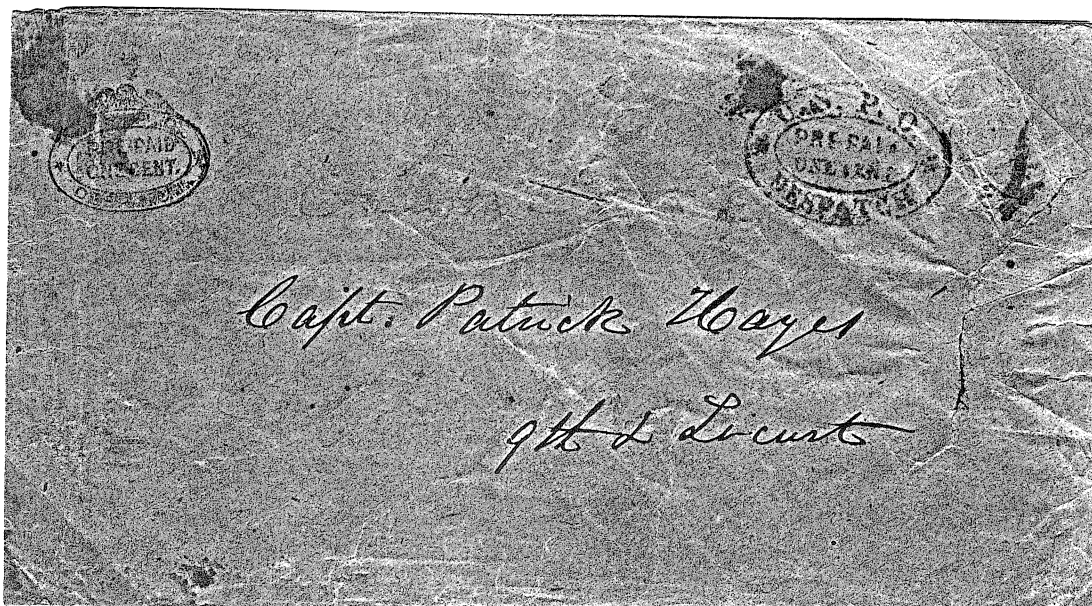 PRE-PAID
ONE CENT.
U.S. P.O.
PRE-PAID
ONE CENT
DESPATCH
Capt. Patrick Hayes
9th & Locust